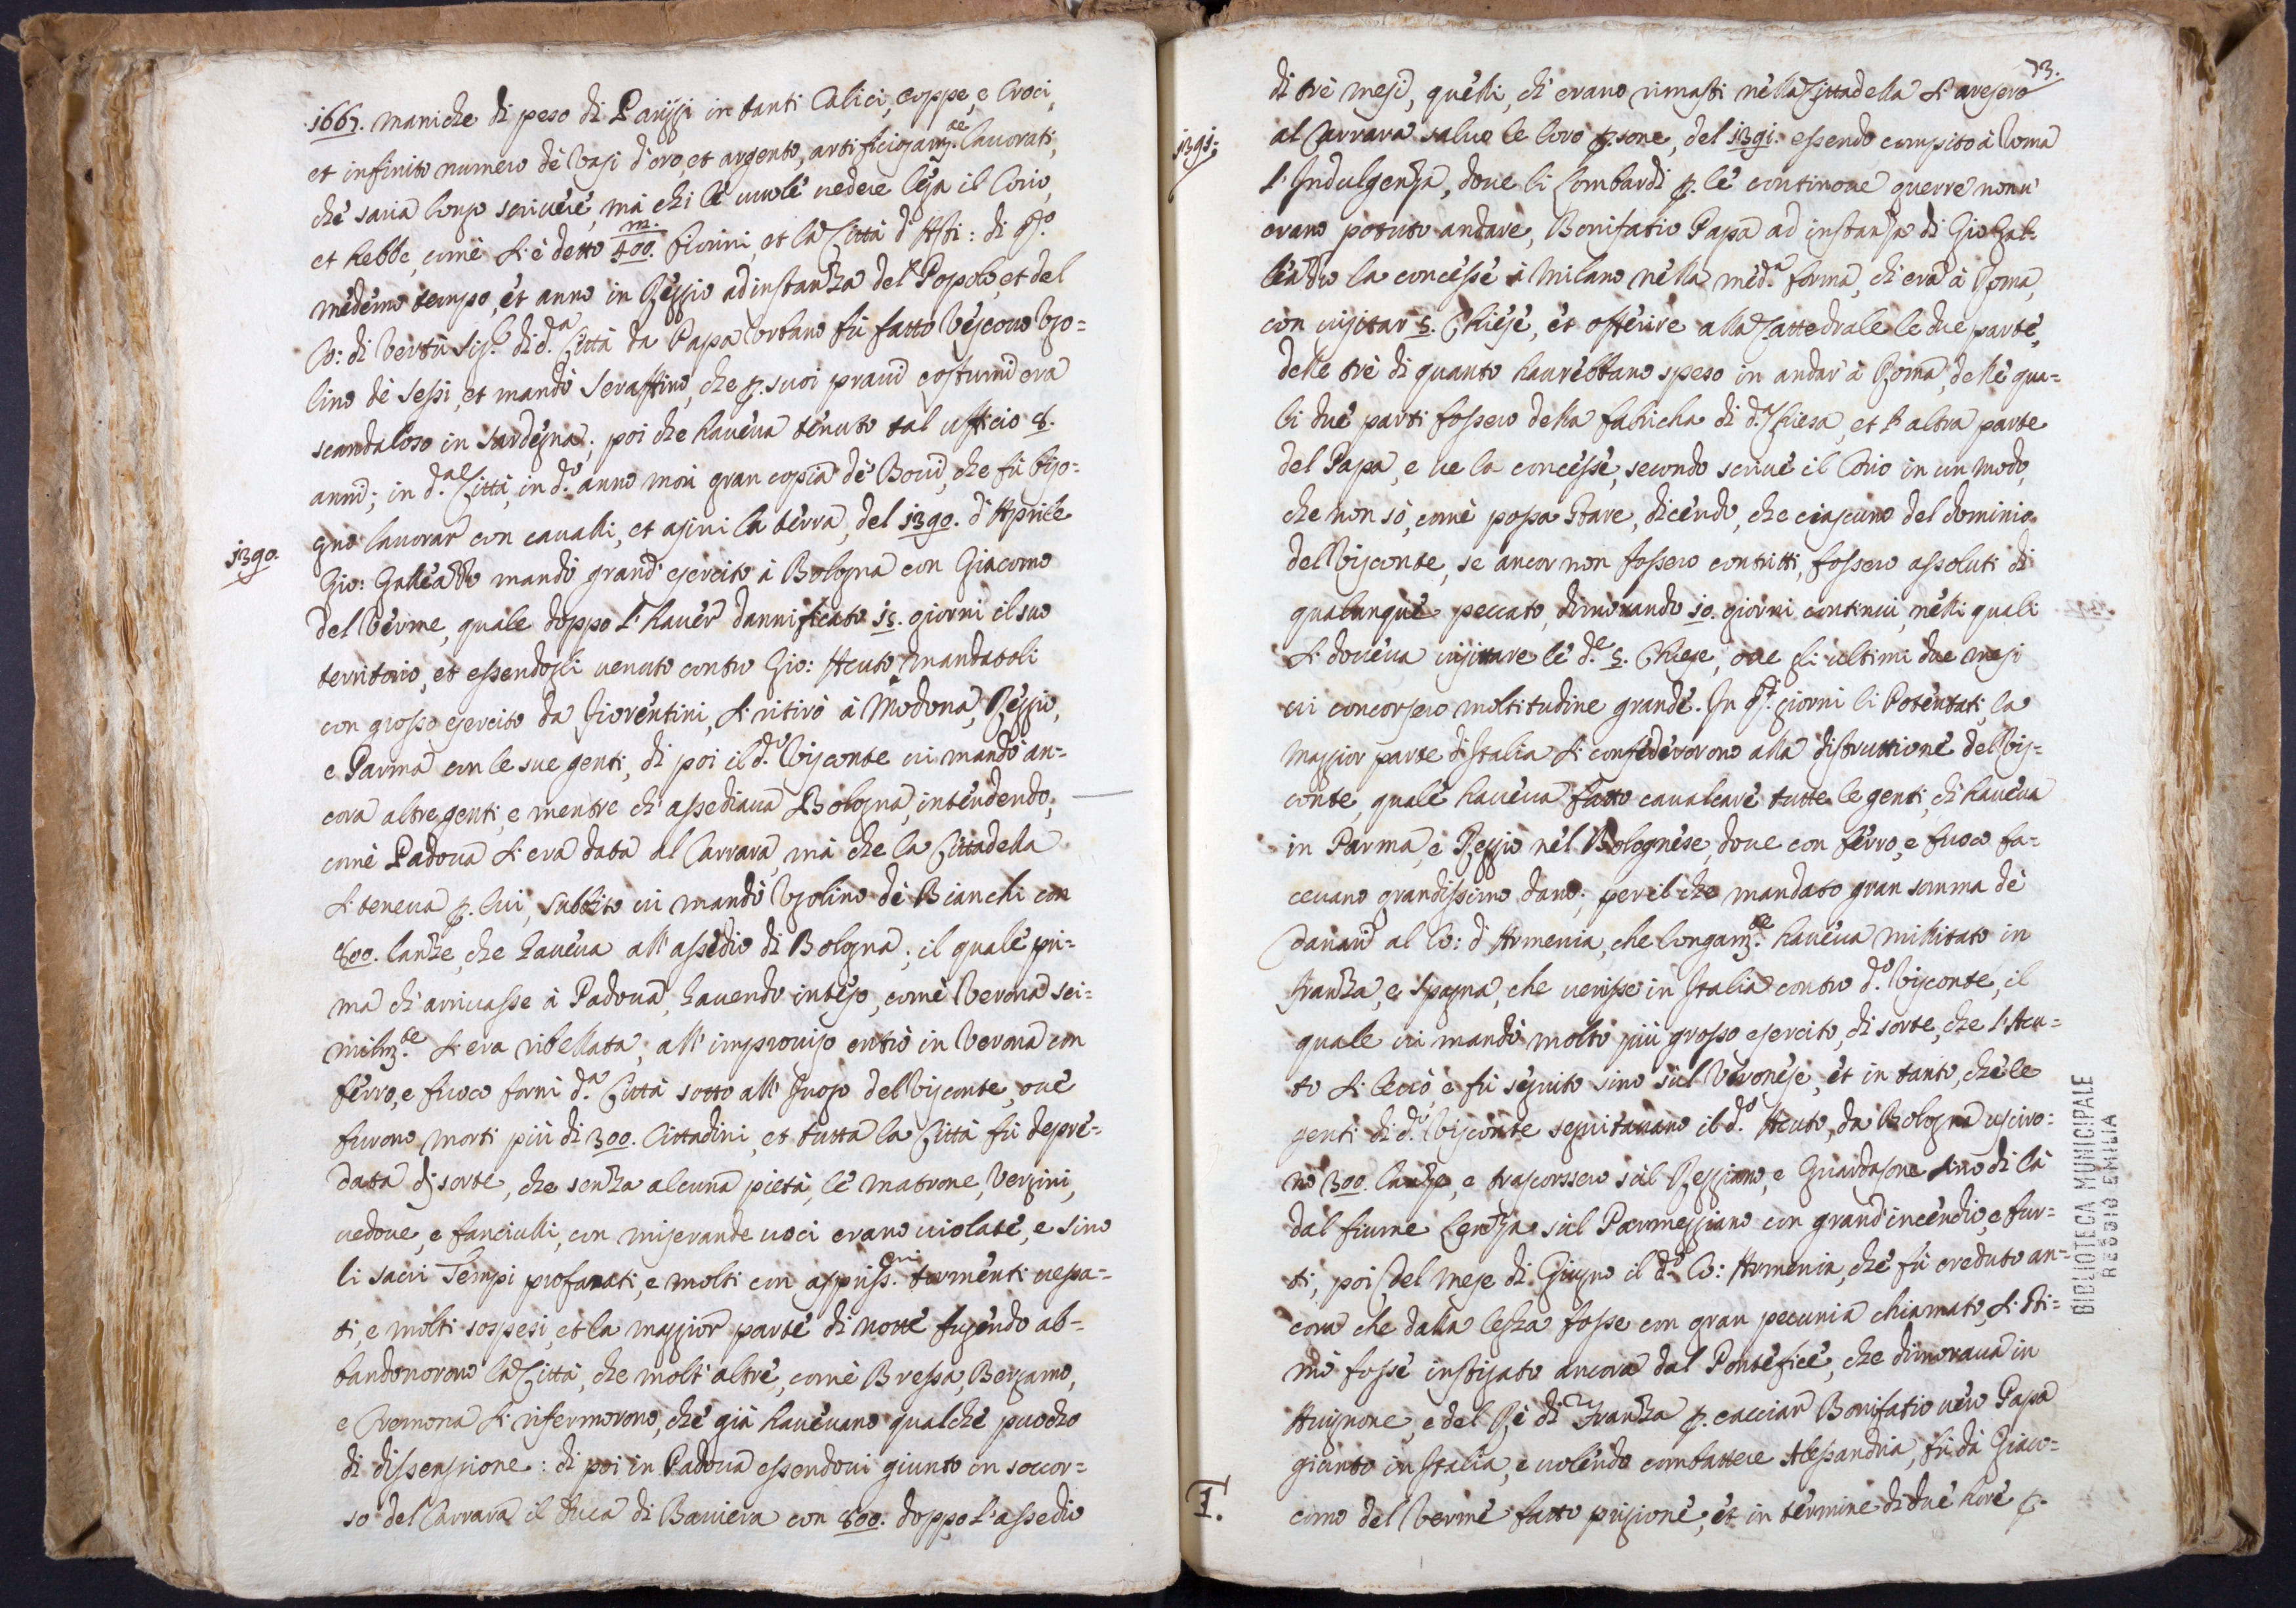 1667. maniche di peso di Pariggi in tanti Calici, coppe, e Croci,
et infinito numero dè Vasi d'oro, et argento, artificiosam.te lauorati,
che saria longo scriuere, mà chi le uuole uedere lega il Corio,
et hebbe, come s'è detto 400.m fiorini, et la Città d'Asti: di q.o
medemo tempo, et anno in Reggio ad instanza del Popolo, et del
Co: di Vertù Sig.r di d.a Città da Papa Urbano fù fatto Vescouo Ugo=
lino dè Sessi, et mandò Seraffino, che p. suoi praui costumi era
scandaloso in Sardegna; poi che haueua tenuto tal ufficio 8.
anni; in d.a Città, in d.o anno morì gran copia dè Boui, che fù biso=
gno lauorar con caualli, et asini la terra, del 1390. d'Aprile
1390.
Gio: Galeazzo mandò grand'esercito à Bologna con Giacomo
del Verme, quale doppo l'hauer dannificato 15. giorni il suo
territorio, et essendogli uenuto contro Gio: Acuto mandatoli
con grosso esercito da Fiorentini, si ritirò à Modona, Reggio,
e Parma con le sue genti, di poi il d.o Visconte ui mandò an=
cora altre genti, e mentre ch'assediaua Bologna, intendendo,
come Padoua s'era data al Carrara, mà che la Cittadella
si teneua p. lui, subbito ui mandò Ugolino dè Bianchi con
800. lanze, che haueua all'assedio di Bologna; il quale pri=
ma ch'arriuasse à Padoua, hauendo inteso, come Verona sci=
milm.te s'era ribellata, all'improuiso entrò in Verona con
ferro, e fuoco tornì d.a Città sotto all' Iuogo del Visconte, oue
furono morti più di 300. Cittadini, et tutta la Città fù depre=
data di sorte, che senza alcuna pietà, le matrone, Vergini,
uedoue, e fanciulli, con miserande uoci erano uiolate, e sino
li sacri Tempi profanati, e molti con aspriss.mi tormenti uessa=
ti, e molti sospesi, et la maggior parte di notte fugendo ab=
bandonorono la Città, che molt'altre, come Bressa, Bergamo,
e Cremona si rifermorono, che già haueuano qualche puocho
di dissensione: di poi in Padoua essendoui giunto in soccor=
so del Carrara il Duca di Bauiera con 800. doppo l'assedio
73.
di trè mesi, quelli, ch'erano rimasti nella Cittadella s'aresero
al Carrara salue le loro p.sone, del 1391. essendo compito à Roma
1391.
l'Indulgenza, doue li Lombardi p. le continoue guerre non u'
erano potuto andare, Bonifatio Papa ad instanza di Gio: Gal=
leazzo la concesse à Milano nella med.a forma, ch'era à Roma,
con uisitar 5. Chiese, et offerire alla Cattedrale le due parte,
delle trè di quanto haurebbano speso in andar' à Roma, delle qua=
li due parti fossero della fabricha di d.a Chiesa, et l'altra parte
del Papa, e ue la concesse, secondo scriue il Corio in un modo,
che non sò, come possa stare, dicendo, che ciascuno del dominio
del Visconte, se ancor non fossero contritti, fossero assoluti di
qualunque peccato, dimorando 10. giorni continui, nelli quali
si doueua uisitare le d.e 5. Chiese, oue gli ultimi due mesi
ui concorsero moltitudine grande. In q.i giorni li Potentati, la
maggior parte d'Italia si confederorono alla distruttione del Vis=
conte, quale haueua fatto caualcare tutte le genti, ch'haueua
in Parma, e Reggio nel Bolognese, doue con ferro, e fuoco fa=
ceuano grandissimo dano; per il che mandato gran somma dè
danari al Co: d'Armenia, che longam.te haueua millitato in
Franza, e Spagna, che uenisse in Italia contro d.o Visconte, il
quale ui mandò molto più grosso esercito, di sorte, che l'Acu=
to si leuò, e fù seguito sino sul Veronese, et in tanto, che le
genti di d.o Visconte seguitauano il d.o Acuto, da Bologna usciro=
no 300. lanze, e trascorssero sul Reggiano, e Guardasone sino di là
dal fiume Lenza sul Parmeggiano con grand'incendio, e fur=
ti, poi del mese di Giugno il d.o Co: Armenia, che fù creduto an=
cora che dalla lega fosse con gran pecunia chiamato, si sti=
mò fosse instigato ancora dal Pontefice, che dimoraua in
Auignone, e del Rè di Franza p. cacciar Bonifatio uero Papa
giunto in Italia, e uolendo combattere Alessandria, fù da Giaco=
como del Verme fatto prigione, et in termine di due hore p.
I.
BIBLIOTECA MUNICIPALE
REGGIO EMILIA